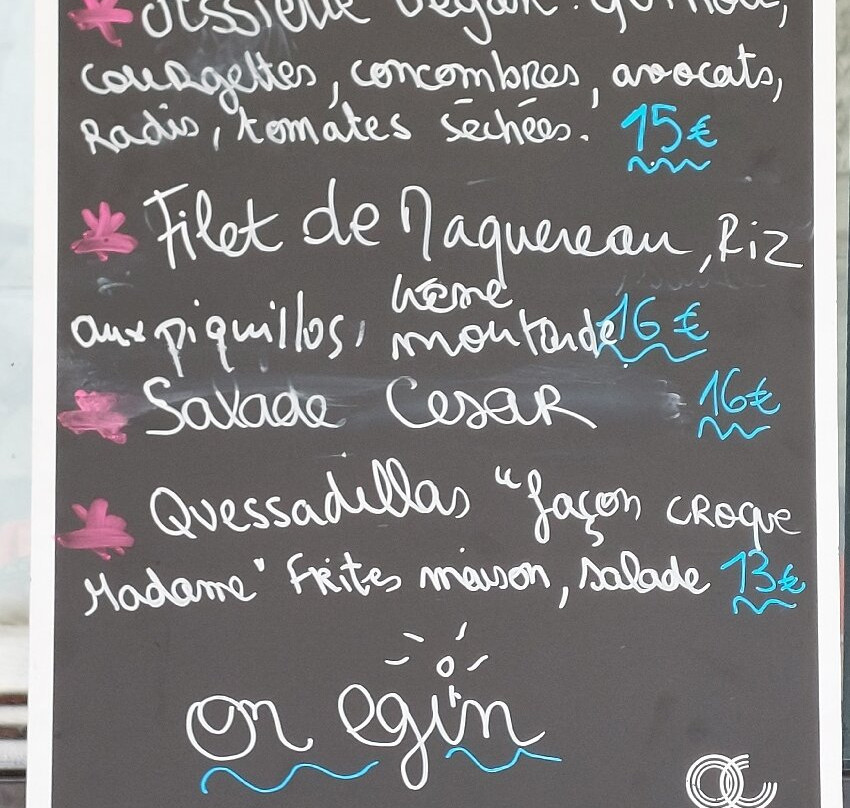 Assiette Vegan: quinoa,
courgettes, concombres, avocats,
Radis, tomates séchées. 15€
Filet de Maquereau, Riz
aux piquillos, crème moutarde 16€
Salade Cesar 16€
Quessadillas "façon croque
Madame" Frites maison, salade 13€
on egin